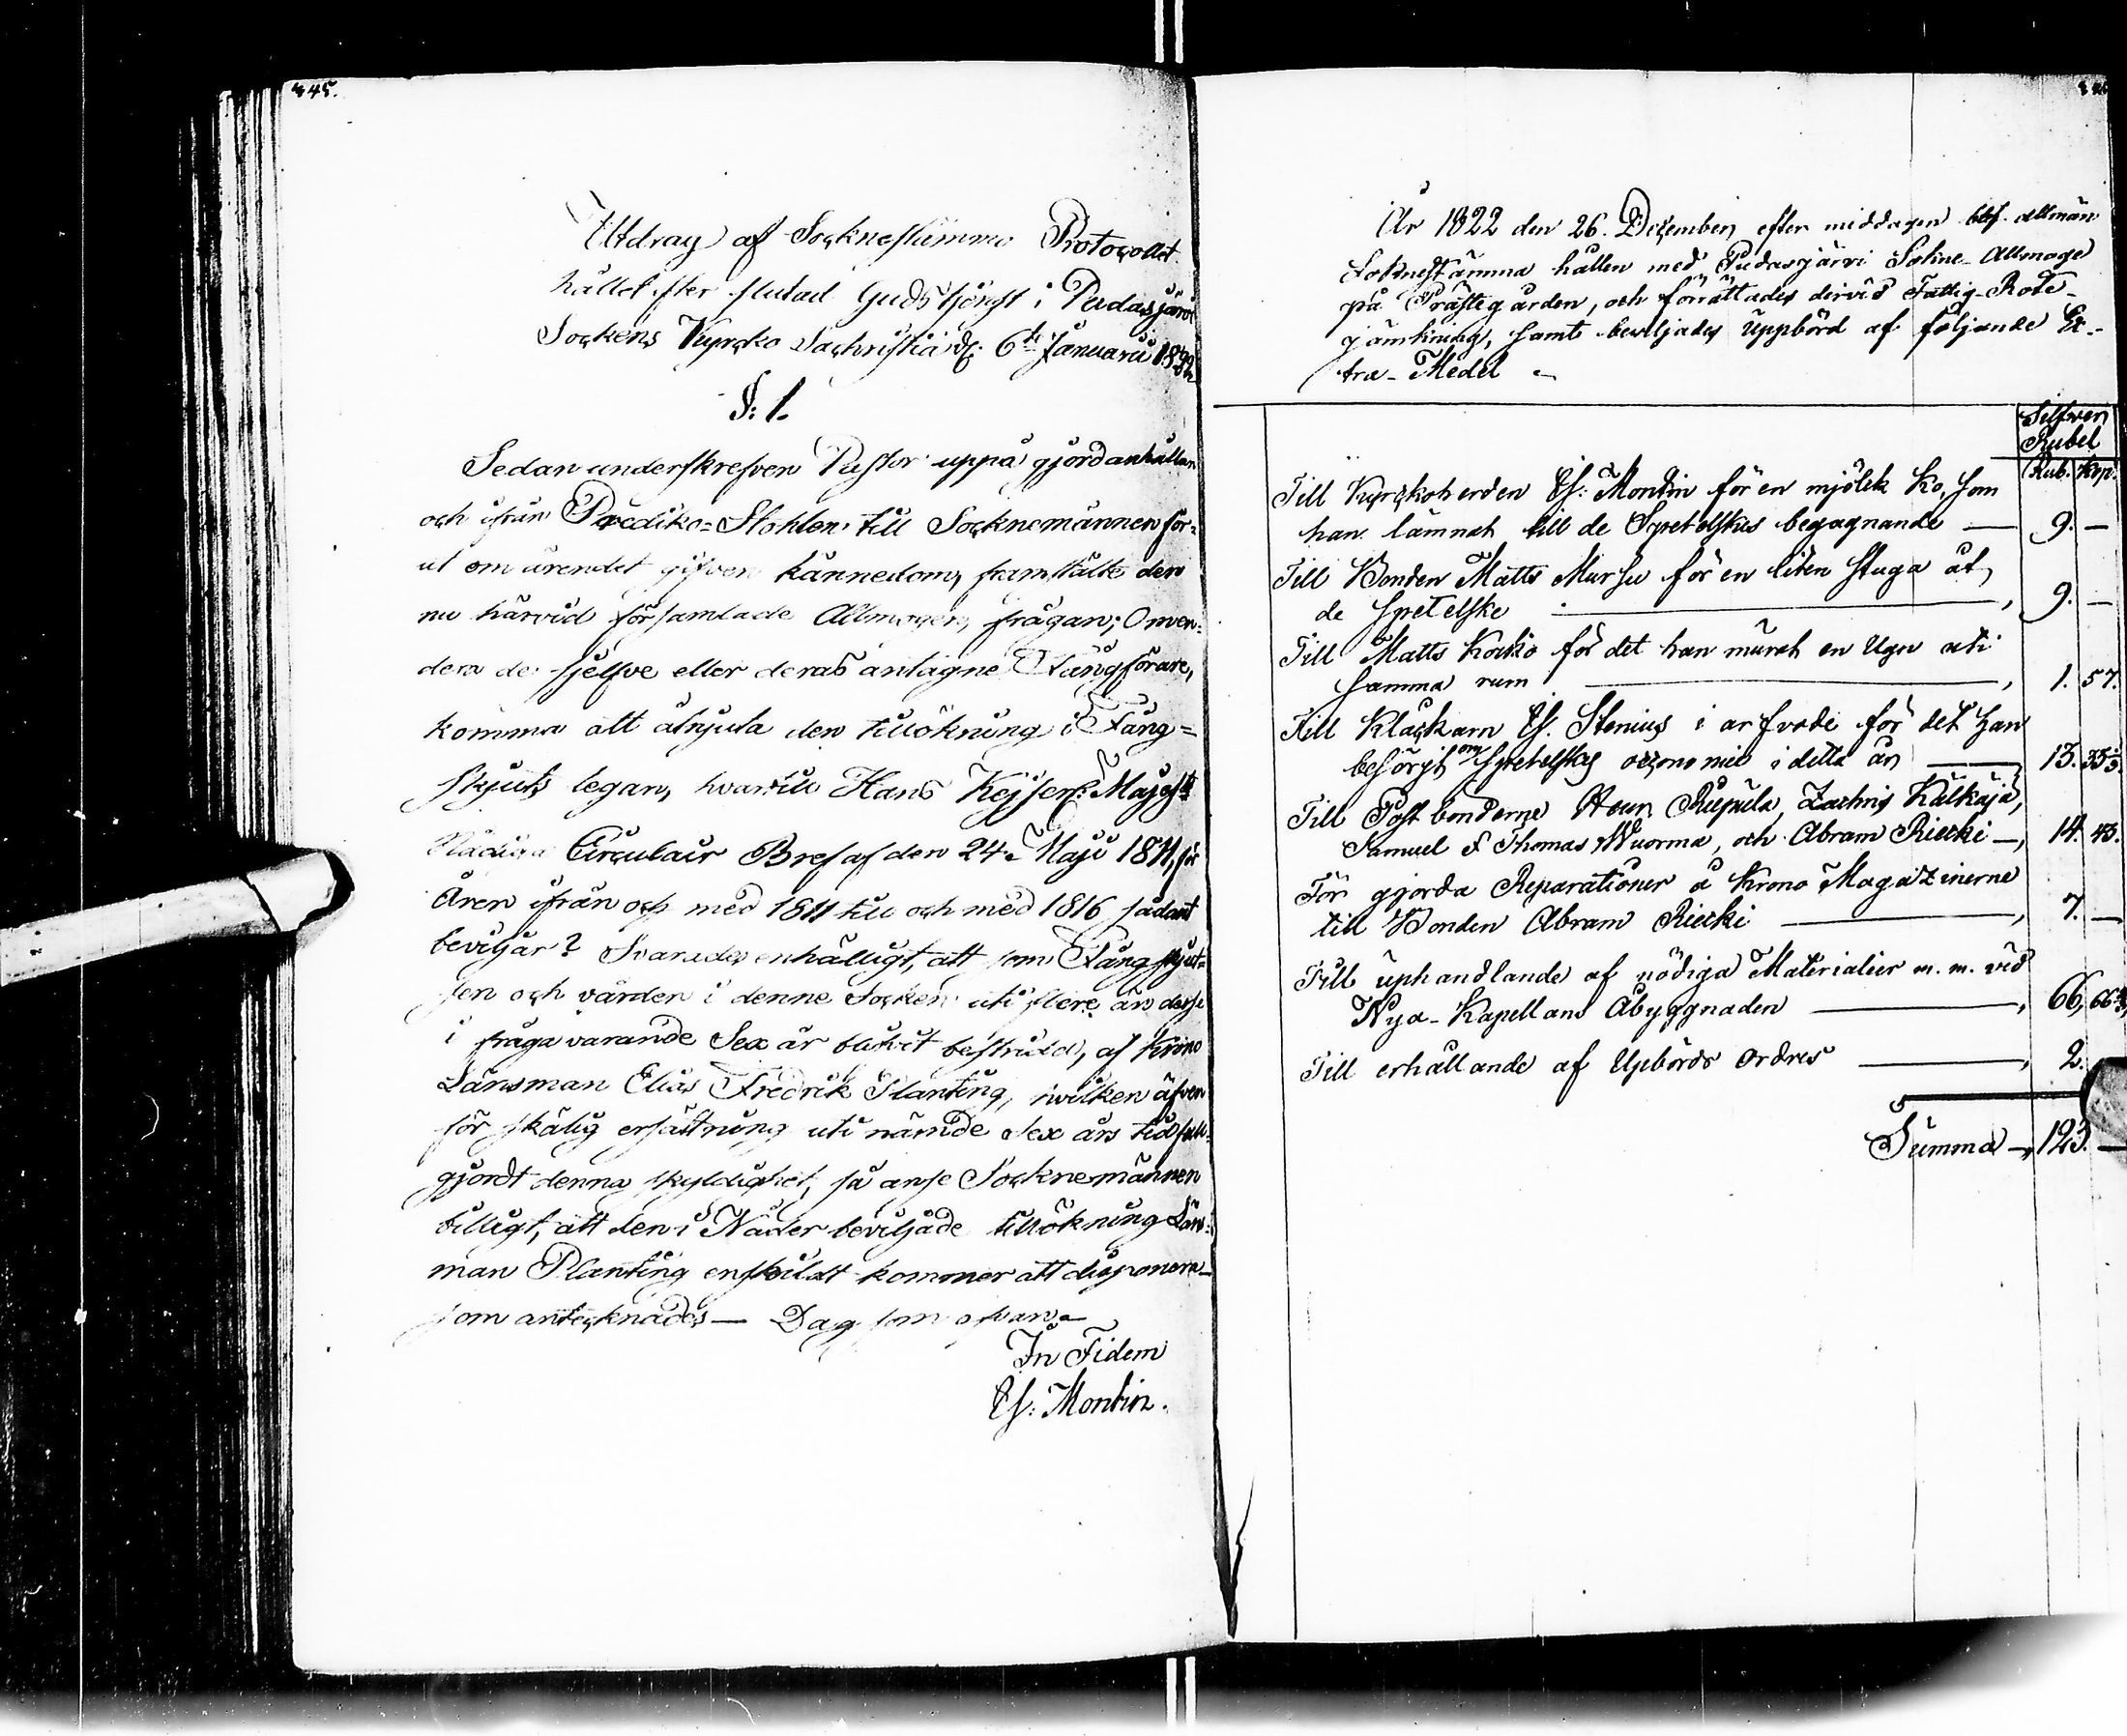 845.
Utdrag af Sockneståmmo Protocollet
hållet efter slutad Gudstjenst i Pudasjärvi
Sockens Kyrcko Sachristia d. 6te Januarii 1822
§: 1.
Sedan underskrefven Pastor uppå gjord anhållan
och ifrån Prediko=Stohlen till Socknemännen för=
ut om ärendet gifven kännedom, framstälte den
nu härvid församlade Allmogen, frågan; Om en=
dera de sjelfve eller deras antagne Fångförare,
komma att åtnjuta den tillökning i Fång=
skjuts legan, hvartill Hans Kejserl: Majestts
Nådiga Circulair Bref af den 24 Maji 1811, för
åren ifrån och med 1811 till och med 1816 sådant
beviljar? Svarades enhälligt, att som Fångskjut=
sen och vården i denne Socken uti flere än desse
i fråga varande Sex år blifvit bestridd, af Krono
Länsman Elias Fredrik Planting, hvilken äfven
för skälig ersättning uti nämde Sex års tid full=
gjordt denna skyldighet, så anse Socknemännen
billigt, att den i Nåder beviljade tillökning Läns=
man Planting enskildt kommer att disponera_
som antecknades — Dag som ofvan_
In Fidem
Es: Montin.
År 1822 den 26. December, efter middagen blef allmän
Soknestämma hållen med Pudasjärvi Sokne-Allmoge
på Prästegården, och förrättades dervid Fattig-Rote-
jämkning, samt beviljades Uppbörd af följande Ex-
tra-Medel
Silfwer
Rubel
Rub. Kop.
Till Kyrckoherden Es: Montin för en mjölk Ko, som
han lämnat till de Spetelskes begagnande — 9. —
Till Bonden Matts Mursu för en liten stuga åt
de Spetelske —, 9. —
Till Matts Korko för det han murat en Ugn uti
samma rum —, 1. 57.
Till Klåckarn Es. Stenius i arfvode för det han
besörjt om Spetelskes oeconomie i detta år — 13. 33⅓
Till Postbönderne Henr. Riepula, Zachris Kälkäjä,
Samuel & Thomas Wuorma, och Abram Riecki —, 14. 43.
För gjorda Reparationer å Krono Magazinerne
till Bonden Abram Riecki —, 7. —
Till uphandlande af nödiga Materialier m. m. vid
Nya-Kapellans Åbyggnaden —, 66, 66⅔
Till erhållande af Upbörds Ordres —, 2.
Summa —, 123. —